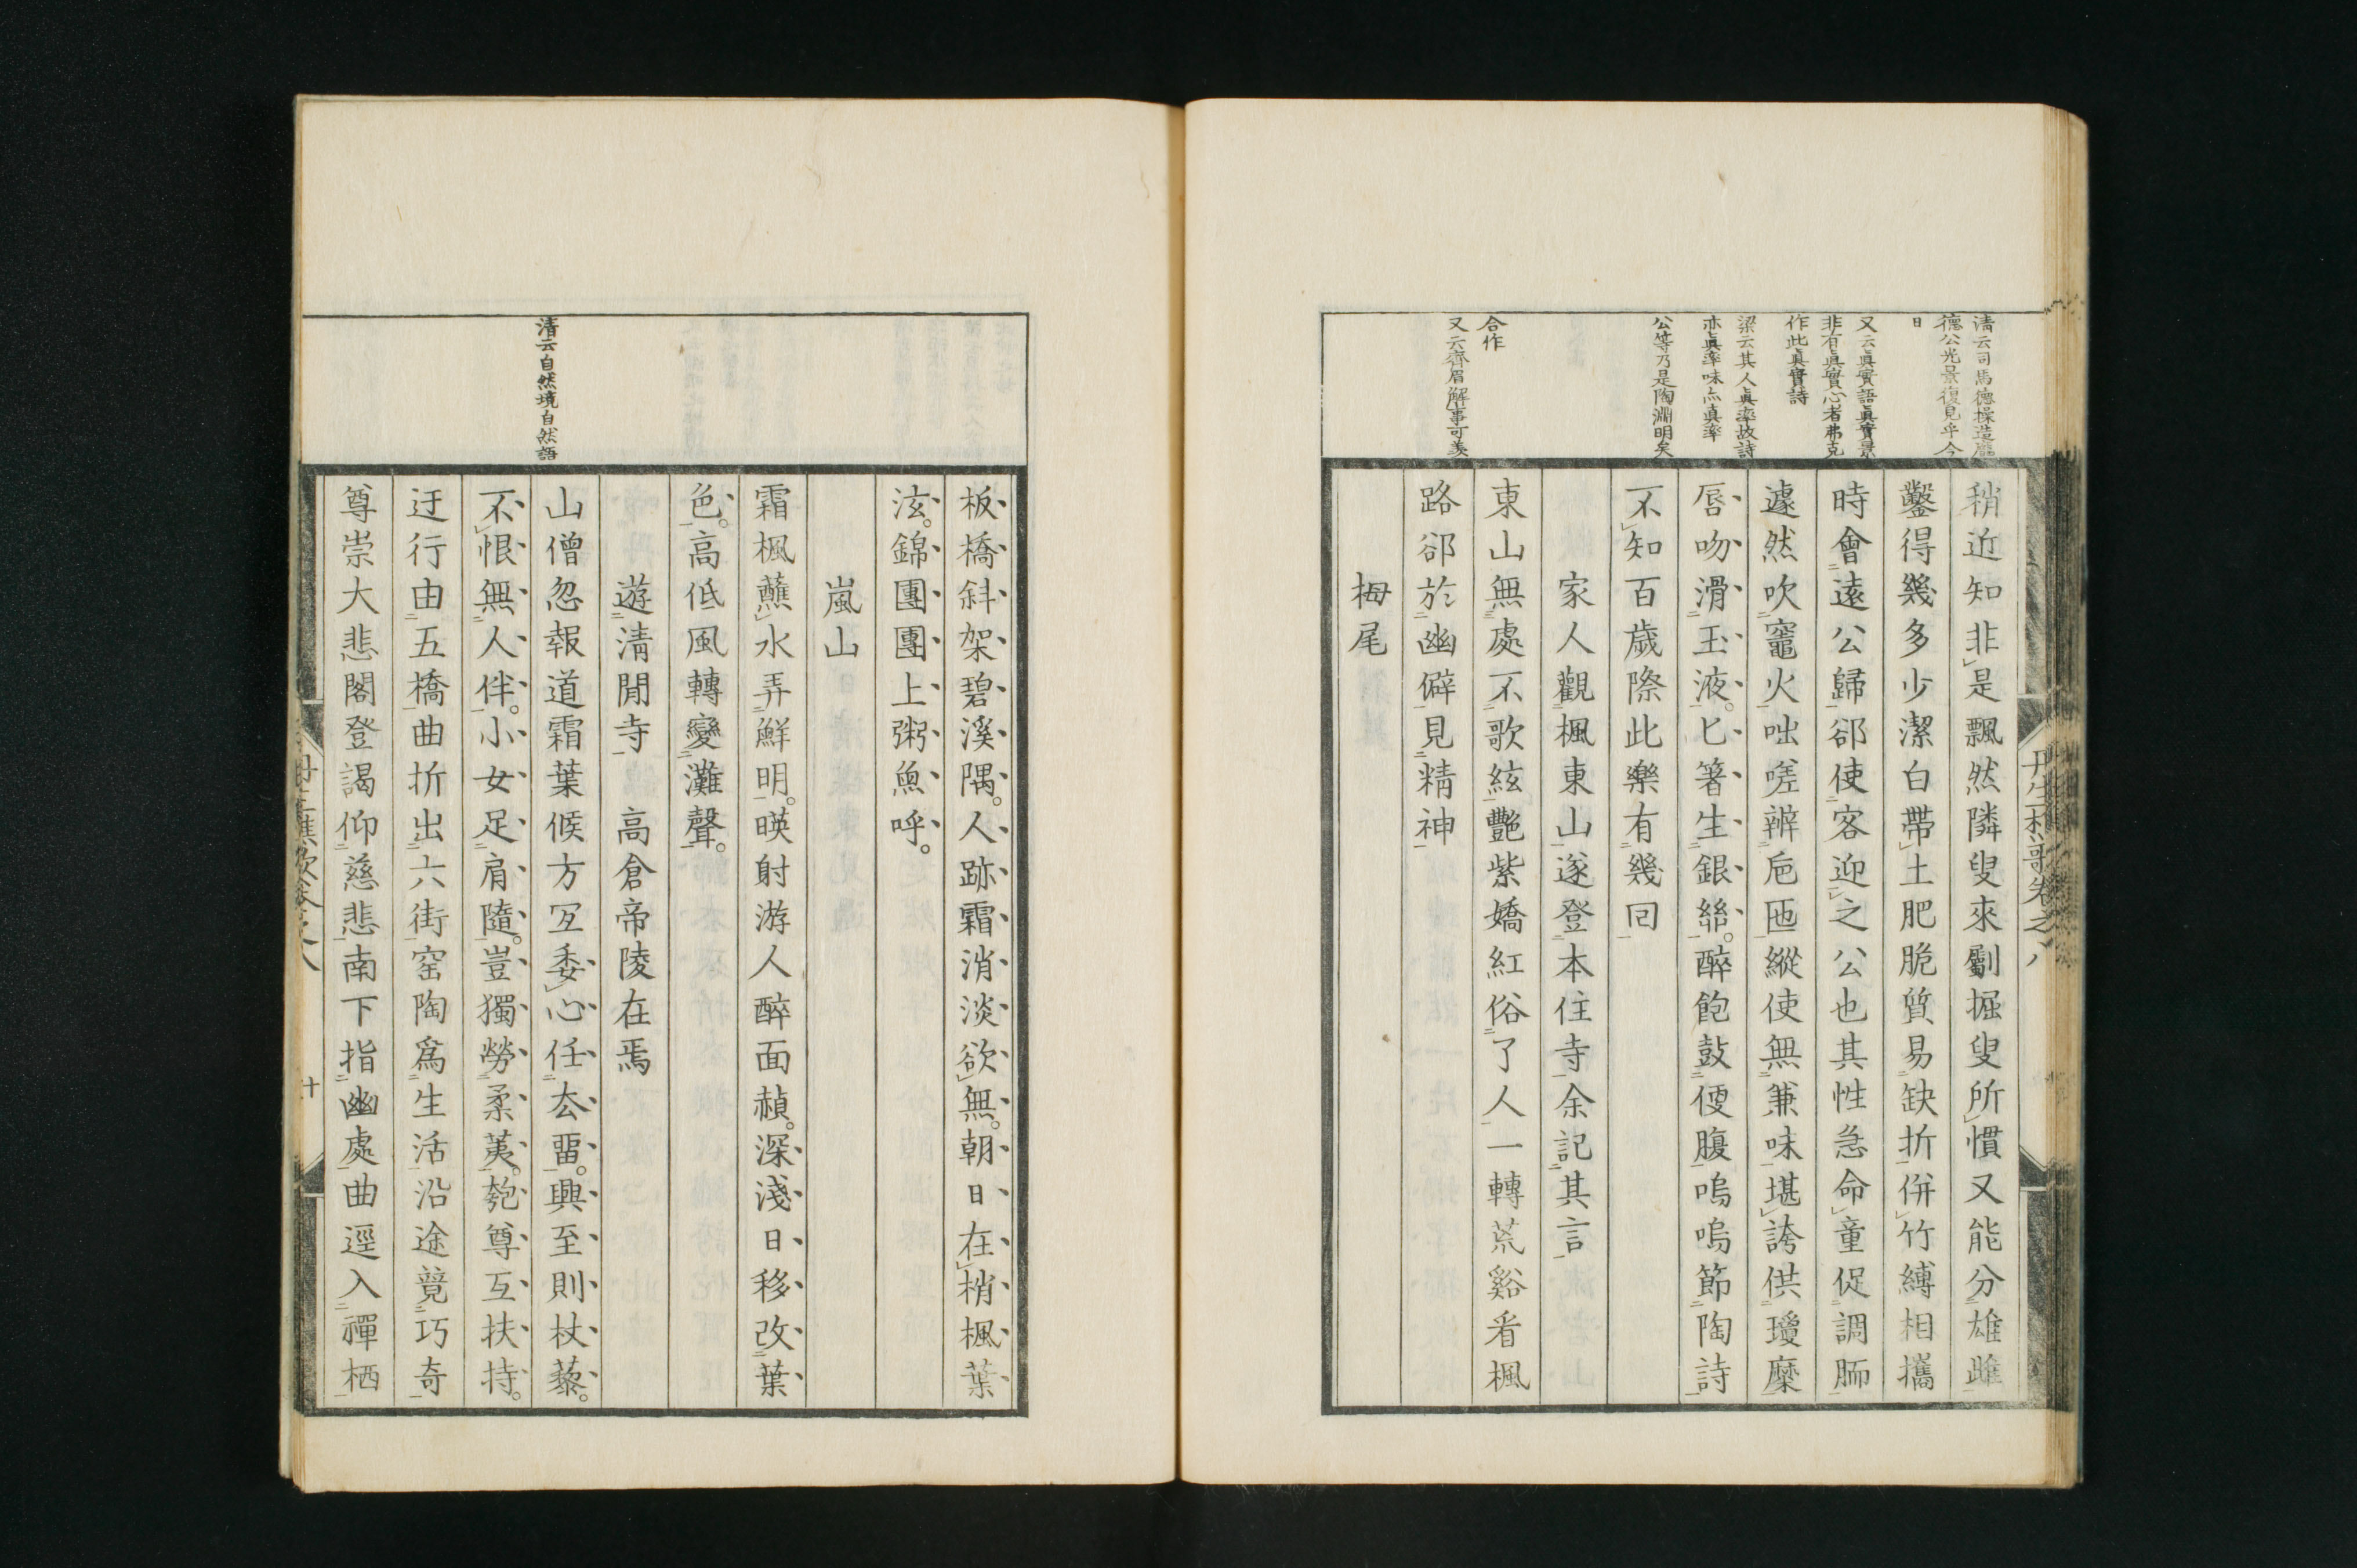 清云司馬德操造龐
德公光景復見乎今
日
又云眞實語眞實景
非有眞實心者弗克
作此眞實詩
梁云其人眞率故詩
亦眞率味亦真率
公等乃是陶淵明矣
合作
又云齊眉解事可羨
稍近知非是飄然隣叟來劚掘叟所慣又能分雄雌
鑿得幾多少潔白帶土肥脆質易缺折併竹縛相攜
時會遠公歸郤使客迎之公也其性急命童促調胹
遽然吹竈火咄嗟辨巵匜縱使無兼味堪誇供瓊糜
唇吻滑玉液匕箸生銀絲醉飽鼓便腹嗚嗚節陶詩
不知百歲際此樂有幾回
家人觀楓東山遂登本住寺余記其言
東山無處不歌絃艷紫嬌紅俗了人一轉荒谿看楓
路郤於幽僻見精神
栂尾
丹生樵歌卷之八
板橋斜架碧溪隅人跡霜消淡欲無朝日在梢楓葉
泫錦團團上粥魚呼
嵐山
霜楓蘸水弄鮮明暎射游人醉面赬深淺日移改葉
色高低風轉變灘聲
遊清閒寺 高倉帝陵在焉
清云自然境自然語
山僧忽報道霜葉候方冝委心任厺畱興至則杖藜
不恨無人伴小女足肩隨豈獨勞柔荑匏尊互扶持
迂行由五橋曲折出六街窑陶爲生活沿途競巧奇
尊崇大悲閣登謁仰慈悲南下指幽處曲逕入禪栖
丹生樵歌卷之八 十